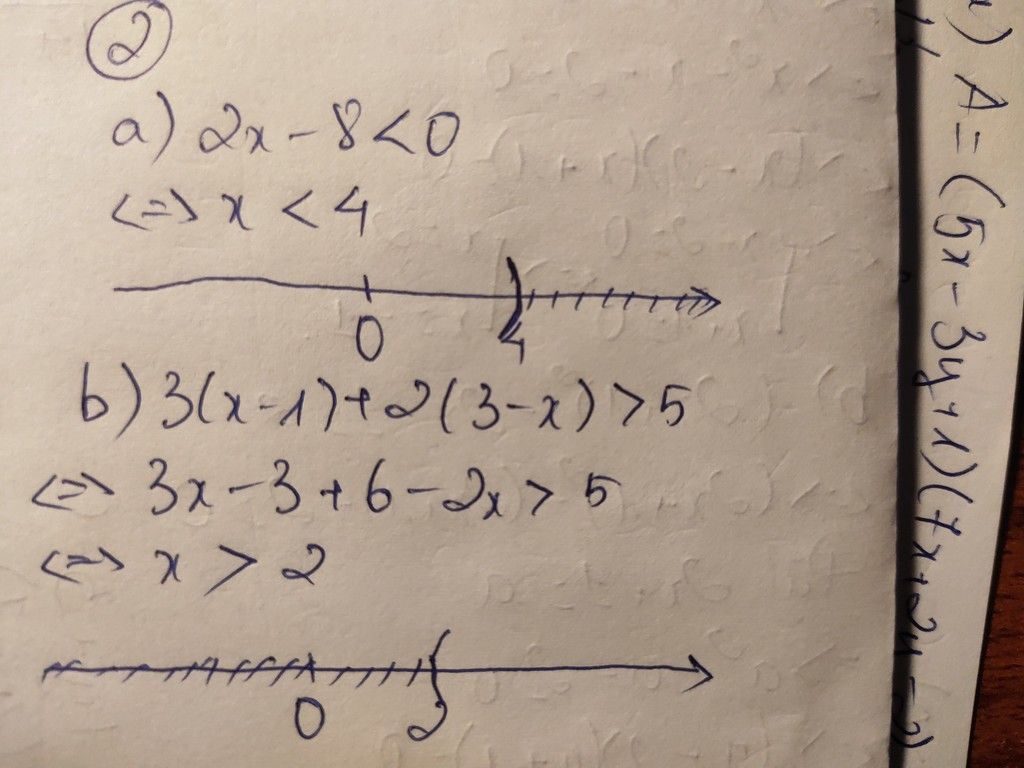 2
a) 2x - 8 < 0
<=> x < 4
0 4
b) 3(x-1) + 2(3-x) > 5
<=> 3x - 3 + 6 - 2x > 5
<=> x > 2
0 2
A = (5x - 3y + 1)(7x + 2y - 2)